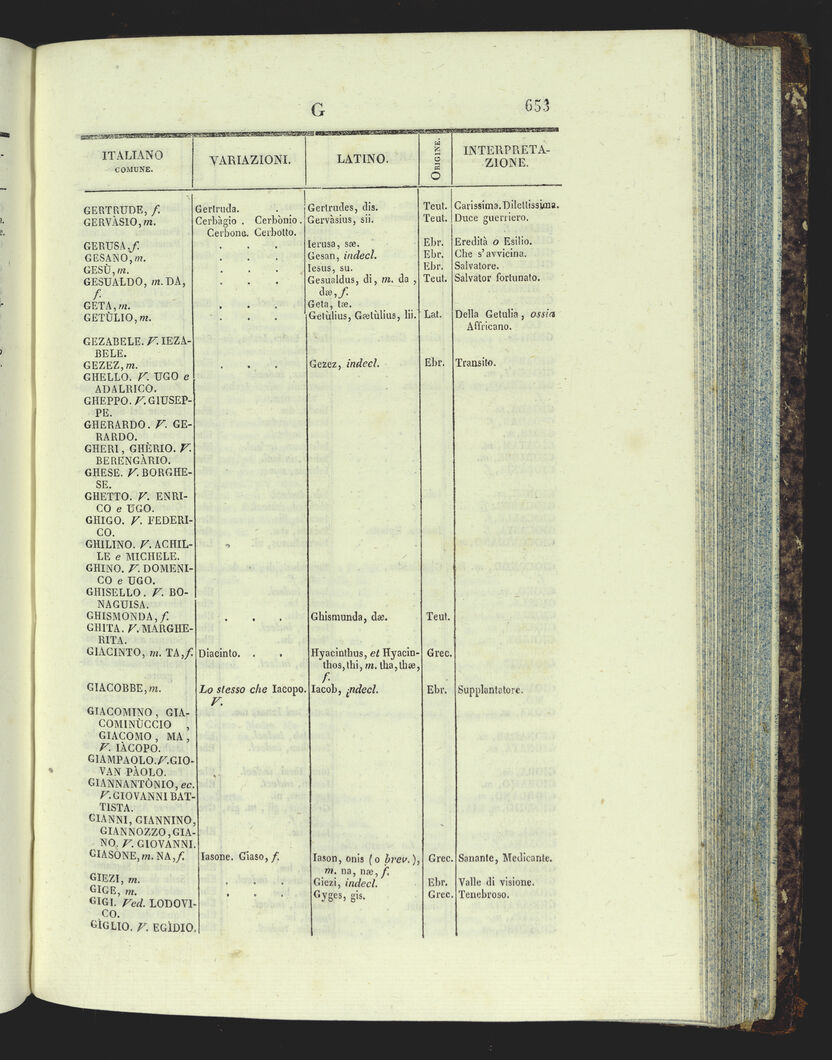 G 653
ITALIANO COMUNE. VARIAZIONI. LATINO. ORIGINE. INTERPRETA-
ZIONE.
GERTRUDE, f. Gertruda. . Gertrudes, dis. Teut. Carissima. Dilettissima.
GERVÀSIO, m. Cerbàgio . Cerbònio . Gervàsius, sii. Teut. Duce guerriero.
Cerbone. Cerbotto.
GERUSA, f. . . . Ierusa, sæ. Ebr. Eredità o Esilio.
GESANO, m. . . . Gesan, indecl. Ebr. Che s'avvicina.
GESÙ, m. . . . Iesus, su. Ebr. Salvatore.
GESUALDO, m. DA, . . . Gesualdus, di, m. da , Teut. Salvator fortunato.
f. dæ, f.
GETA, m. . . . Geta, tæ.
GETÙLIO, m. . . . Getùlius, Gætùlius, lii. Lat. Della Getulia, ossia
Affricano.
GEZABELE. V. IEZA-
BELE.
GEZEZ, m. . . . Gezez, indecl. Ebr. Transito.
GHELLO. V. UGO e
ADALRICO.
GHEPPO. V. GIUSEP-
PE.
GHERARDO. V. GE-
RARDO.
GHERI, GHÈRIO. V.
BERENGÀRIO.
GHESE. V. BORGHE-
SE.
GHETTO. V. ENRI-
CO e UGO.
GHIGO. V. FEDERI-
CO.
GHILINO. V. ACHIL-
LE e MICHELE.
GHINO. V. DOMENI-
CO e UGO.
GHISELLO. V. BO-
NAGUISA.
GHISMONDA, f. . . . Ghismunda, dæ. Teut.
GHITA. V. MARGHE-
RITA.
GIACINTO, m. TA, f. Diacinto. . . Hyacinthus, et Hyacin- Grec.
thos, thi, m. tha, thæ,
f.
GIACOBBE, m. Lo stesso che Iacopo. Iacob, indecl. Ebr. Supplantatore.
V.
GIACOMINO, GIA-
COMINÙCCIO ,
GIACOMO, MA,
V. IÀCOPO.
GIAMPAOLO. V. GIO-
VAN PÀOLO.
GIANNANTÒNIO, ec.
V. GIOVANNI BAT-
TISTA.
GIANNI, GIANNINO,
GIANNOZZO, GIA-
NO. V. GIOVANNI.
GIASONE, m. NA, f. Iasone. Giaso, f. Iason, onis (o brev.), Grec. Sanante, Medicante.
m. na, næ, f.
GIEZI, m. . . . Giezi, indecl. Ebr. Valle di visione.
GIGE, m. . . . Gyges, gis. Grec. Tenebroso.
GIGI. Ved. LODOVI-
CO.
GÌGLIO. V. EGÌDIO.